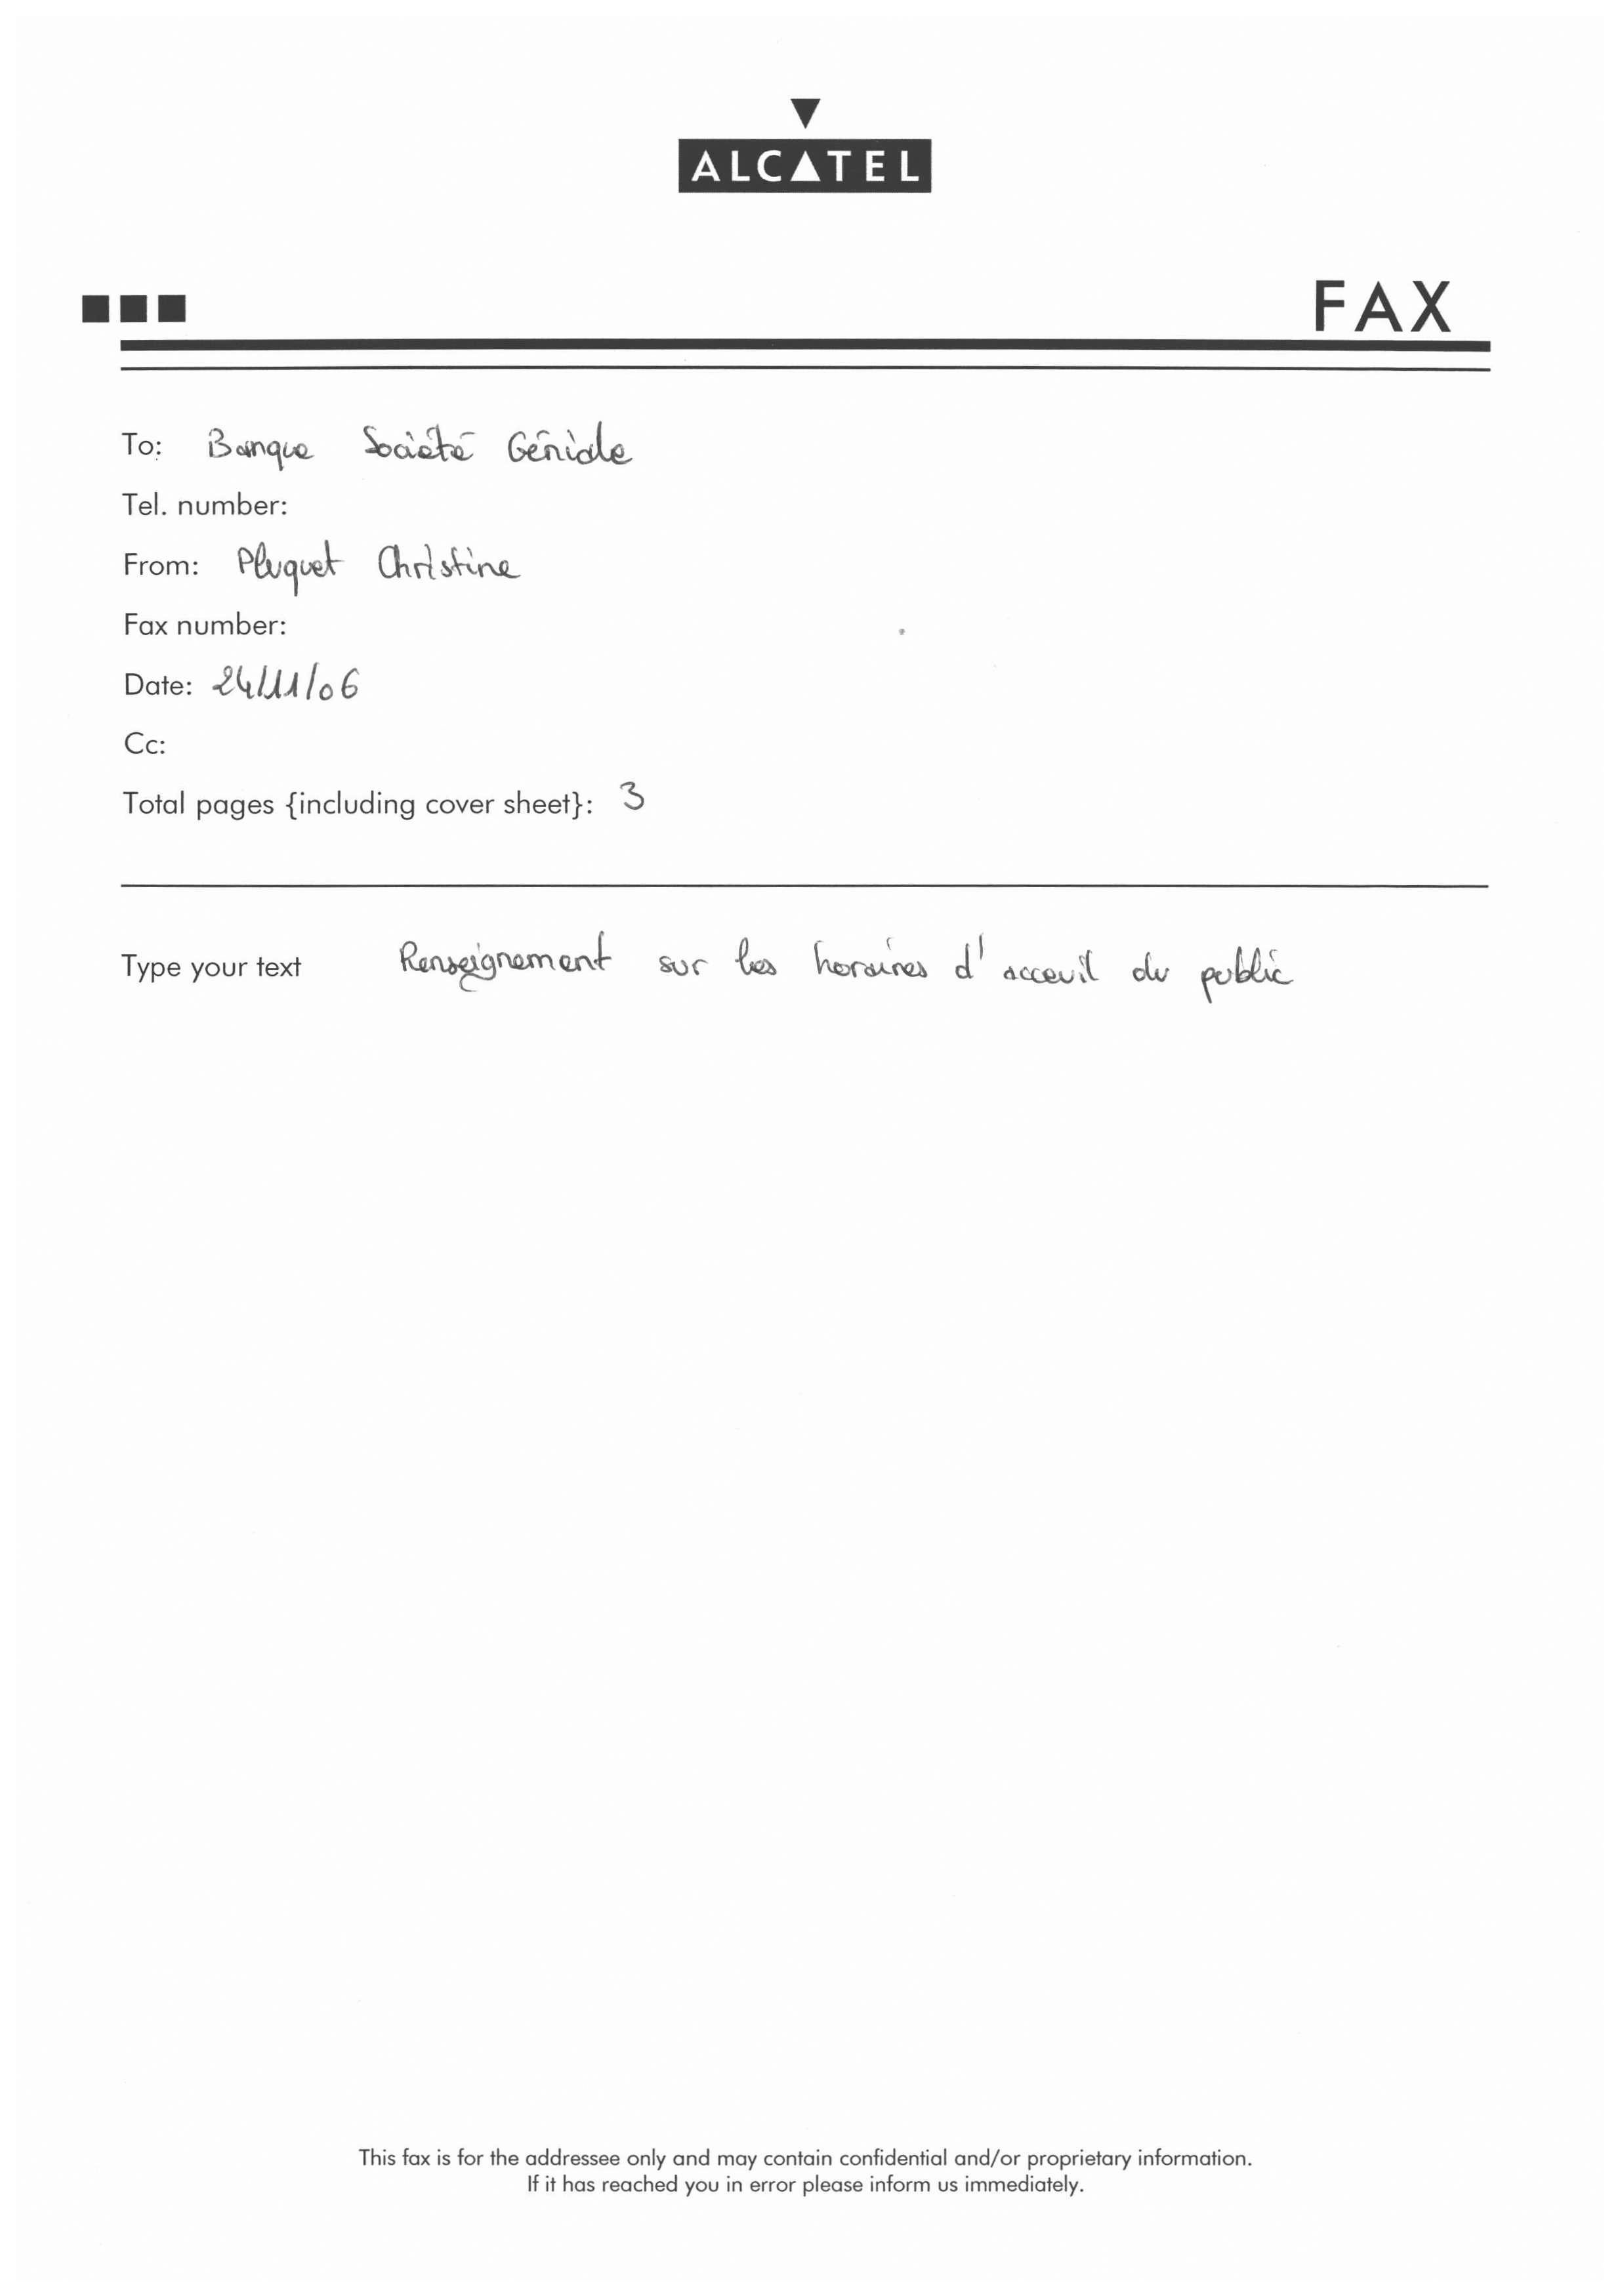 ALCATEL
FAX
To: Banque Société Géniale
Tel. number:
From: Pluquet Christine
Fax number:
Date: 24/11/06
Cc:
Total pages {including cover sheet}: 3
Type your text Renseignement sur les horaires d'acceuil du public
This fax is for the addressee only and may contain confidential and/or proprietary information.
If it has reached you in error please inform us immediately.